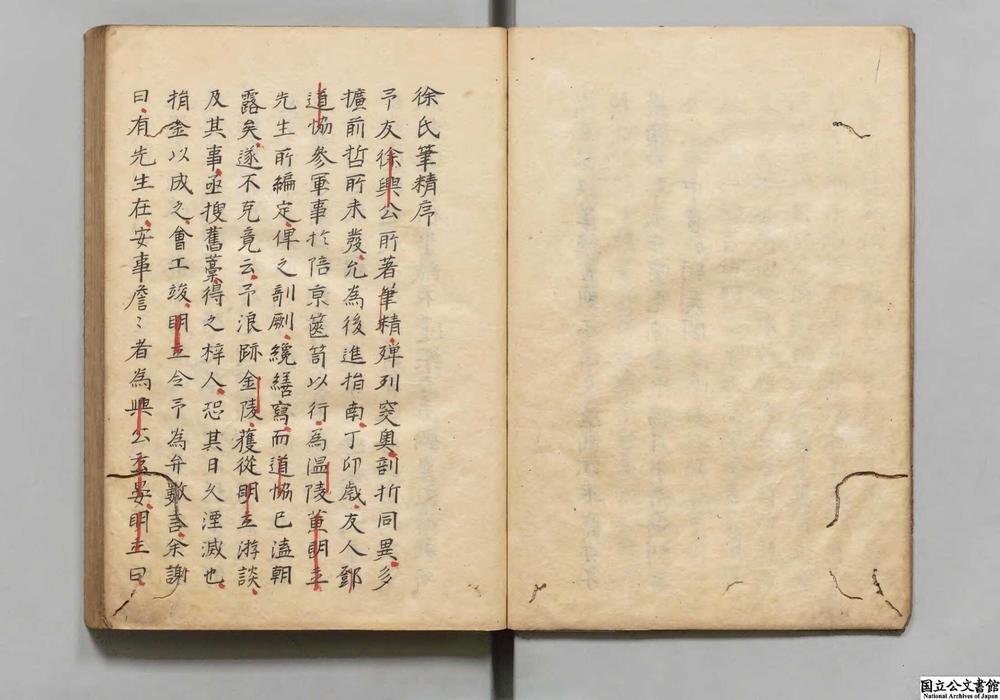 徐氏筆精序
予友徐興公所著筆精殫列突奧剖析同異多
擴前哲所未發允為後進指南丁卯歲友人鄧
道協參軍事於陪京篋笥以行為温陵黄明立
先生所編定俾之剞劂纔繕寫而道協已溘朝
露矣遂不克竟云予浪跡金陵獲從明立游談
及其事亟搜舊藁得之梓人恐其日久湮滅也
捐金以成之會工竣明立令予為弁數言余謝
曰有先生在安事詹〻者為興公玄晏明立曰
国立公文書館
National Archives of Japan